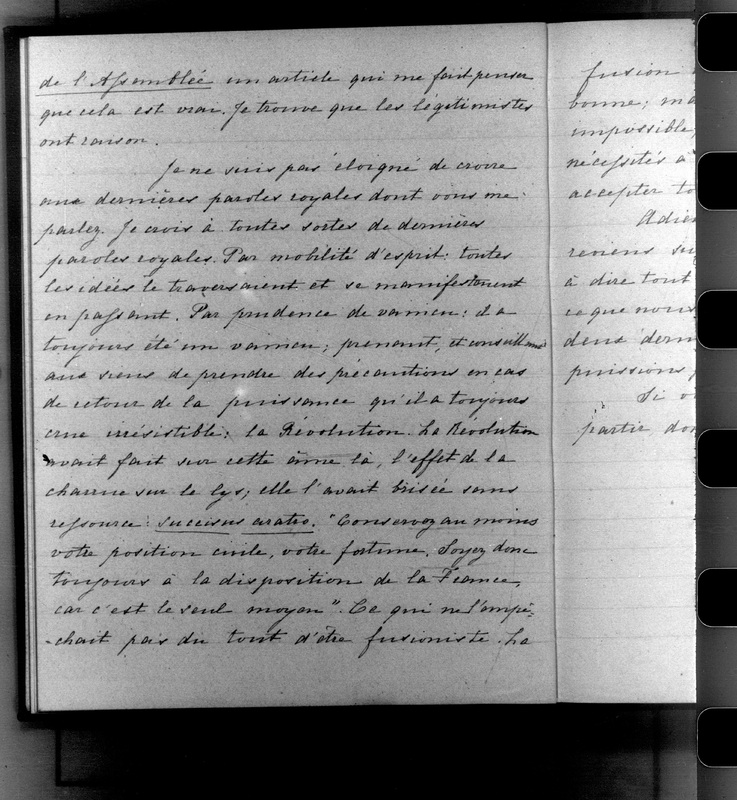 de l'Assemblée un article qui me fait penser
que cela est vrai. Je trouve que les légitimistes
ont raison.
Je ne suis pas éloigné de croire
aux dernières paroles royales dont vous me
parlez. Je crois à toutes sortes de dernières
paroles royales. Par mobilité d'esprit: toutes
les idées le traversaient et se manifestaient
en passant. Par prudence de vaincu: il a
toujours été un vaincu; prenant, et conseillant
aux siens de prendre des précautions en cas
de retour de la puissance qu'il a toujours
crue irrésistible: la Révolution. La Révolution
avait fait sur cette âme là, l'effet de la
charrue sur le lys; elle l'avait brisée sans
ressource: succisus aratro. "Conservez au moins
votre position civile, votre fortune. Soyez donc
toujours à la disposition de la France,
car c'est le seul moyen". Ce qui ne l'empê-
-chait pas du tout d'être fusioniste. La
fusion
bonne; ma
impossible,
nécessités a
accepter to
Adieu
reviens su
à dire tout
ce que nous
deux dern
puissions
Si v
partir don